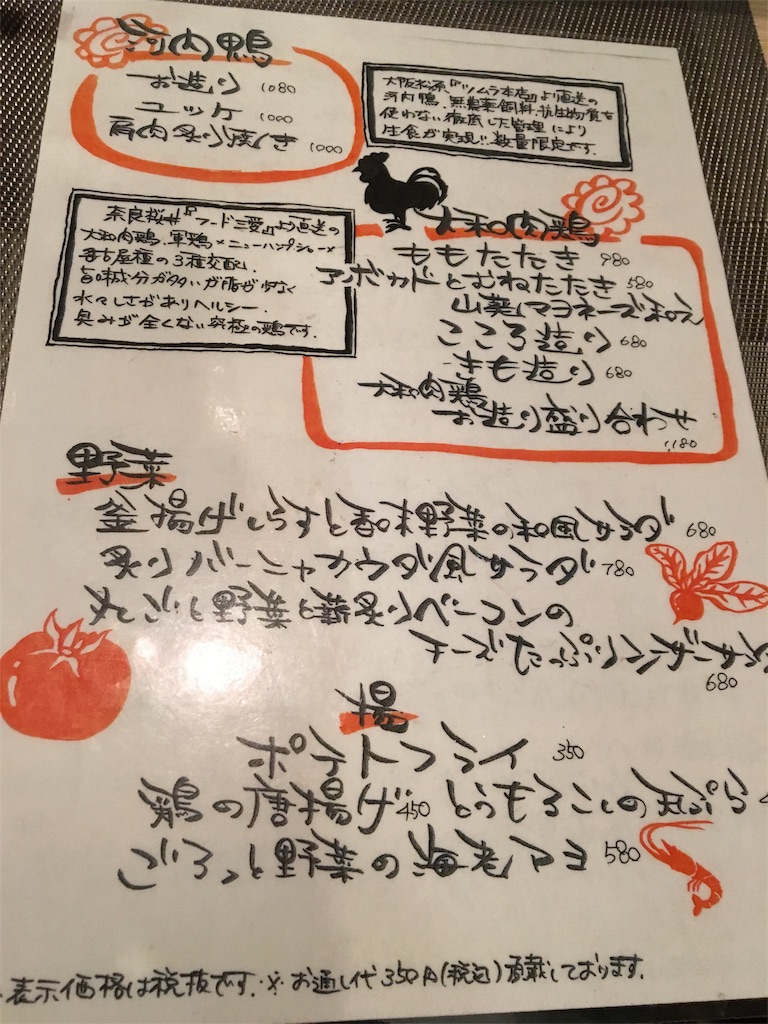 河内鴨
お造り 1080
ユッケ 1000
肩肉炙り焼き 1000
大阪松原『ツムラ本店』より直送の
河内鴨。無農薬飼料、抗生物食を
使わない徹底した管理により
生食が実現!!数量限定です。
奈良桜井『フード三愛』より直送の
大和肉鶏。軍鶏×ニューハンプシャー×
名古屋種の3種交配。
旨味成分が多いが脂が少なく
水々しさがありヘルシー。
臭みが全くない究極の鶏です。
大和肉鶏
ももたたき 980
アボカドとむねたたき 580
山葵マヨネーズ和え
こころ造り 680
きも造り 680
大和肉鶏
お造り盛り合わせ
1,180
野菜
釜揚げしらすと春野菜の和風サラダ 680
炙りバーニャカウダ風サラダ 780
丸ごと野菜と炙りベーコンの
チーズたっぷりシーザー
680
揚
ポテトフライ 350
鶏の唐揚げ 450 とうもろこしの
ごろっと野菜の海老マヨ 580
表示価格は税抜です。※お通し代350円(税込)頂戴しております。